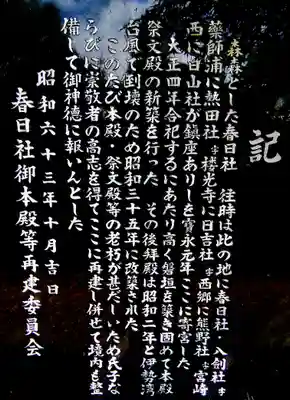 記
森森とした春日社　往時は此の地に春日社・八剣社　字
薬師浦に熱田社　字楼光寺に日吉社　字西郷に熊野社　字宮崎
西に白山社が鎮座ありしを宝永元年ここに寄宮した
大正四年合祀するにあたり高く磐垣を築き固めて本殿
祭文殿の新築を行った　その後拝殿は昭和二年と伊勢湾
台風で倒壊のため昭和三十五年に改築された
このたび本殿・祭文殿等の老朽が甚だしいため氏子な
らびに崇敬者の高志を得てここに再建し併せて境内も整
備して御神徳に報いんとした
昭和六十三年十月吉日
春日社御本殿等再建委員会